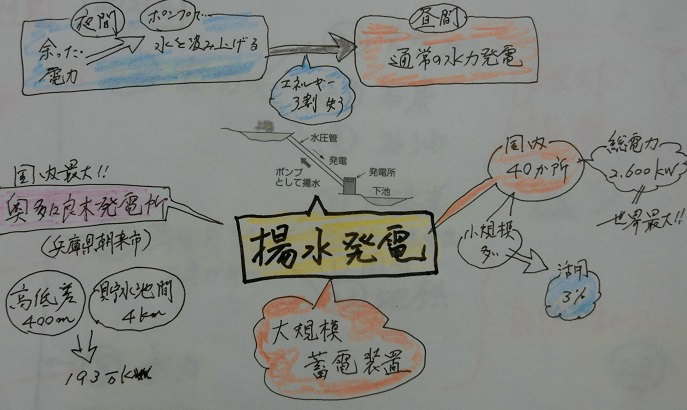 夜間
ポンプで…
余った
電力
水を汲み上げる
昼間
通常の水力発電
エネルギー
3割失う
水圧管
発電
ポンプ
として揚水
発電所
下池
国内
40か所
総電力
2,600kW
世界最大!!
小規模
多い
活用
3%
国内最大!!
奥多々良木発電所
(兵庫県朝来市)
高低差
400m
貯水池間
4km
193万kW
揚水発電
大規模
蓄電装置